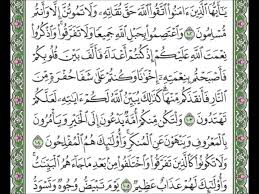 يَٰٓأَيُّهَا ٱلَّذِينَ ءَامَنُوا۟ ٱتَّقُوا۟ ٱللَّهَ حَقَّ تُقَاتِهِۦ وَلَا تَمُوتُنَّ إِلَّا وَأَنتُم
مُّسْلِمُونَ ١٠٢ وَٱعْتَصِمُوا۟ بِحَبْلِ ٱللَّهِ جَمِيعًا وَلَا تَفَرَّقُوا۟ وَٱذْكُرُوا۟
نِعْمَتَ ٱللَّهِ عَلَيْكُمْ إِذْ كُنتُمْ أَعْدَآءً فَأَلَّفَ بَيْنَ قُلُوبِكُمْ
فَأَصْبَحْتُم بِنِعْمَتِهِۦٓ إِخْوَٰنًا وَكُنتُمْ عَلَىٰ شَفَا حُفْرَةٍ مِّنَ
ٱلنَّارِ فَأَنقَذَكُم مِّنْهَا كَذَٰلِكَ يُبَيِّنُ ٱللَّهُ لَكُمْ ءَايَٰتِهِۦ لَعَلَّكُمْ
تَهْتَدُونَ ١٠٣ وَلْتَكُن مِّنكُمْ أُمَّةٌ يَدْعُونَ إِلَى ٱلْخَيْرِ وَيَأْمُرُونَ
بِٱلْمَعْرُوفِ وَيَنْهَوْنَ عَنِ ٱلْمُنكَرِ وَأُو۟لَٰٓئِكَ هُمُ ٱلْمُفْلِحُونَ ١٠٤
وَلَا تَكُونُوا۟ كَٱلَّذِينَ تَفَرَّقُوا۟ وَٱخْتَلَفُوا۟ مِنۢ بَعْدِ مَا جَآءَهُمُ ٱلْبَيِّنَٰتُ
وَأُو۟لَٰٓئِكَ لَهُمْ عَذَابٌ عَظِيمٌ ١٠٥ يَوْمَ تَبْيَضُّ وُجُوهٌ وَتَسْوَدُّ